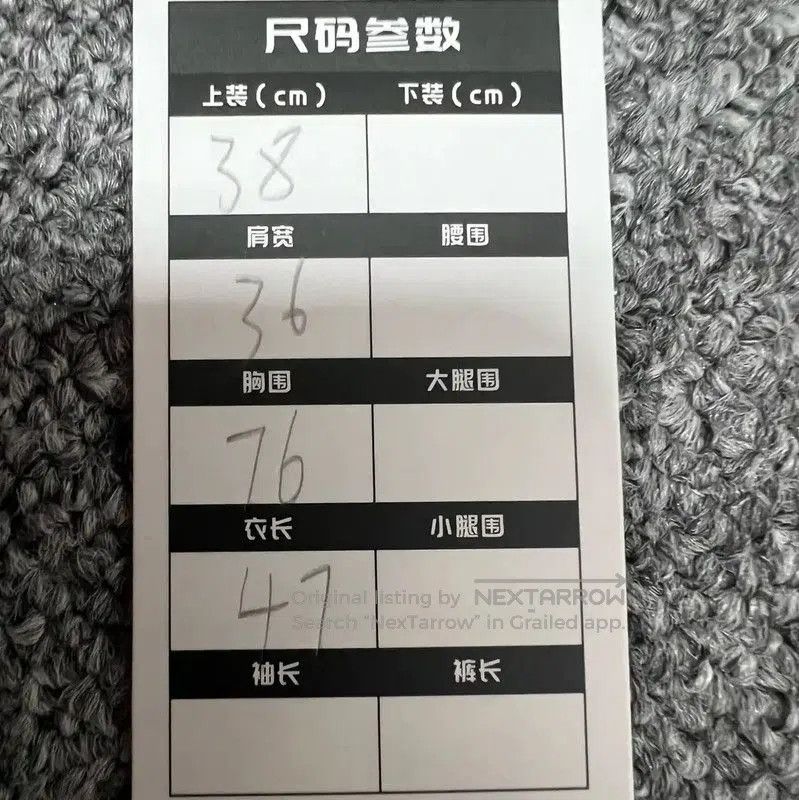 尺码参数
上装(cm) 下装(cm)
38
肩宽 腰围
36
胸围 大腿围
76
衣长 小腿围
47
Original listing by NEXTARROW
Search "NexTarrow" in Grailed app.
袖长 裤长